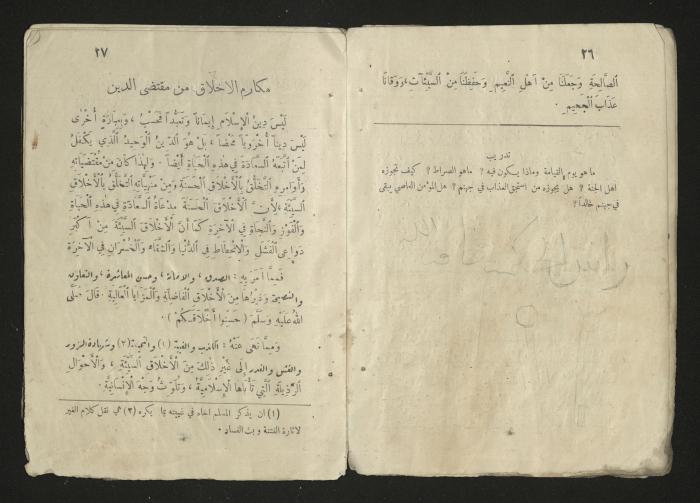 ٢٦
الصَّالِحَةِ وَجَعَلَنَا مِنْ أَهْلِ النَّعِيمِ وَحَفِظَنَا مِنَ السَّيِّئَاتِ، وَوَقَانَا
عَذَابَ الْجَحِيمِ .
تدريب
ما هو يوم القيامة وماذا يسكون فيه ؟ ماهو الصراط ؟ كيف تجوزه
اهل الجنة ؟ هل يجوزه من استحق العذاب في جهنم ؟ هل المؤمن العاصي يبقى
في جهنم خالداً ؟
٢٧
مكارم الاخلاق من مقتضى الدين
لَيْسَ دِينُ الْإِسْلَامِ إِيمَاناً وَتَعَبُّداً فَحَسْبُ ، وَبِعِبَارَةٍ أُخْرَى
لَيْسَ دِيناً أُخْرَوِياً مَحْضاً ، بَلْ هُوَ الدِّينُ الْوَحِيدُ الَّذِي يَكْفَلُ
لِمَنِ اتَّبَعَهُ السَّعَادَةَ فِي هَذِهِ الْحَيَاةِ أَيْضاً . وَلِهذَا كَانَ مِنْ مُقْتَضَيَاتِهِ
وَأَوَامِرِهِ التَّخَلُّقُ بِالْأَخْلَاقِ الْحَسَنَةِ وَمِنْ مَنْهِيَّاتِهِ التَّخَلُّقُ بِالْأَخْلَاقِ
السَّيِّئَةِ ، لِأَنَّ الْأَخْلَاقَ الْحَسَنَةَ مَدْعَاةُ السَّعَادَةِ فِي هَذِهِ الْحَيَاةِ
وَالْفَوْزِ وَالنَّجَاةِ فِي الْآخِرَةِ كَمَا أَنَّ الْأَخْلَاقَ السَّيِّئَةَ مِنْ أَكْبَرِ
دَوَاعِي الْفَشَلِ وَالْإِنْحِطَاطِ فِي الدُّنْيَا وَالشَّقَاءِ وَالْخُسْرَانِ فِي الْآخِرَةِ
فَمِمَّا أَمَرَ بِهِ : الصدق ، والامانة ، وحسن المعاشرة ، والتعاون
والنصيحة وَغَيْرُهَا مِنَ الْأَخْلَاقِ الْفَاضِلَةِ وَالْمَزَايَا الْعَالِيَةِ . قَالَ صَلَّى
اللهُ عَلَيْهِ وَسَلَّمَ ( حَسِّنُوا أَخْلَاقَكُمْ ) .
وَمِمَّا نَهَى عَنْهُ : الكذب والغيبة (١) والنميمة (٢) وشهادة الزور
والغش والغدر إِلَى غَيْرِ ذَلِكَ مِنَ الْأَخْلَاقِ السَّيِّئَةِ ، وَالْأَحْوَالِ
الرَّذِيلَةِ الَّتِي تَأْبَاهَا الْإِسْلَامِيَّةُ ، وَتُلَوِّثُ وَجْهَ الْإِنْسَانِيَّةِ .
(١) ان يذكر المسلم اخاه في غيبته بما يكره (٢) هي نقل كلام الغير
لاثارة الفتنة وبث الفساد .